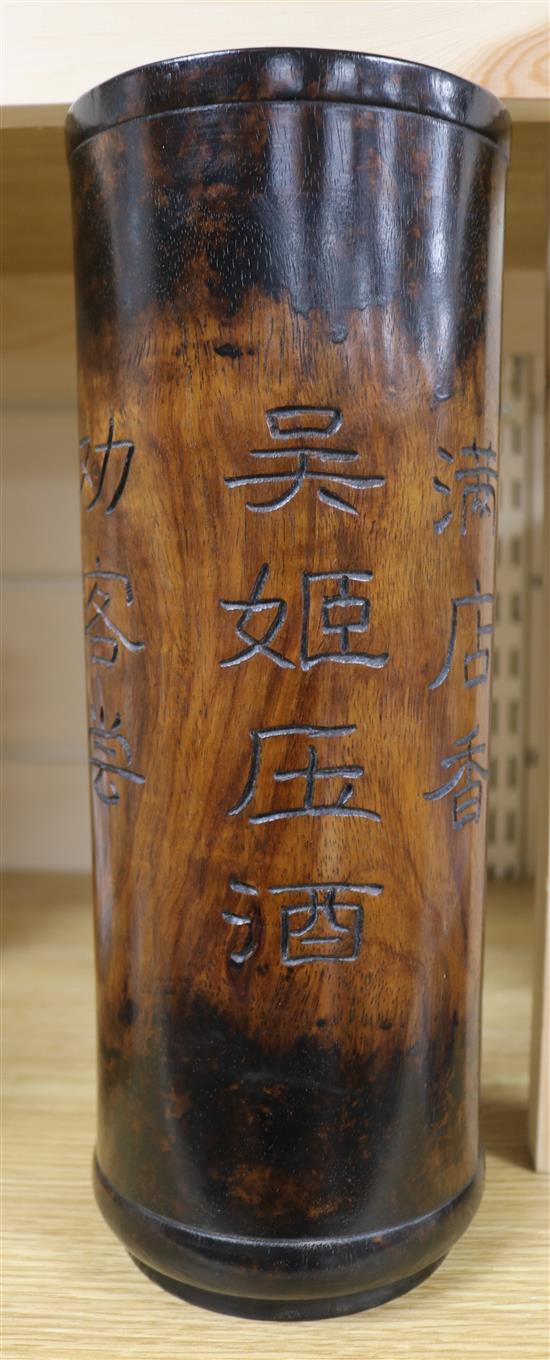 满店香
吴姬压酒
劝客尝